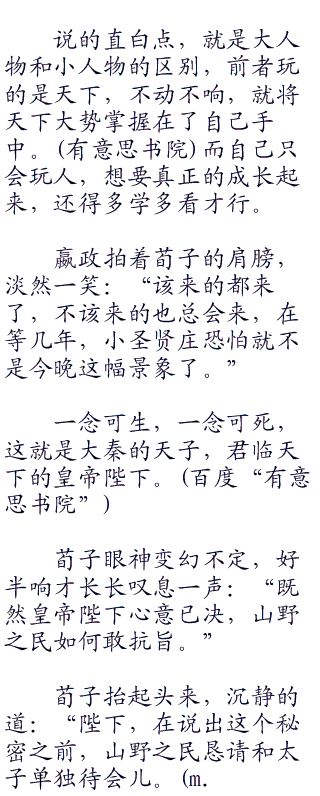 说的直白点，就是大人
物和小人物的区别，前者玩
的是天下，不动不响，就将
天下大势掌握在了自己手
中。(有意思书院)而自己只
会玩人，想要真正的成长起
来，还得多学多看才行。
嬴政拍着荀子的肩膀，
淡然一笑：“该来的都来
了，不该来的也总会来，在
等几年，小圣贤庄恐怕就不
是今晚这幅景象了。”
一念可生，一念可死，
这就是大秦的天子，君临天
下的皇帝陛下。(百度“有意
思书院”)
荀子眼神变幻不定，好
半响才长长叹息一声：“既
然皇帝陛下心意已决，山野
之民如何敢抗旨。”
荀子抬起头来，沉静的
道：“陛下，在说出这个秘
密之前，山野之民恳请和太
子单独待会儿。(m.